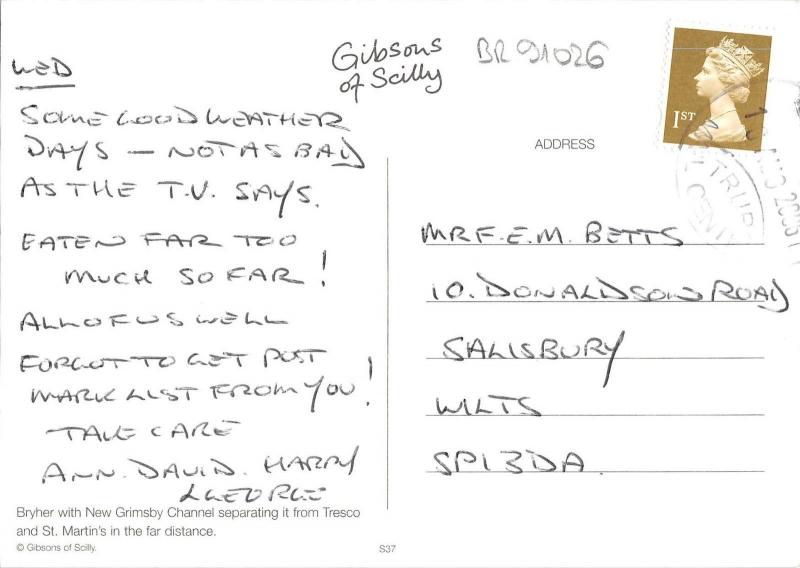 WED
SOME GOOD WEATHER
DAYS — NOT AS BAD
AS THE T.V. SAYS.
EATEN FAR TOO
MUCH SO FAR!
ALL OF US WELL
FORGOT TO GET POST
MARK LIST FROM YOU!
TAKE CARE
ANN. DAVID. HARRY
& GEORGE
Bryher with New Grimsby Channel separating it from Tresco
and St. Martin's in the far distance.
© Gibsons of Scilly.
S37
Gibsons
of Scilly
BR 91026
1ST
ADDRESS
MR F.E.M. BETTS
10. DONALDSON ROAD
SALISBURY
WILTS
SP1 3DA.